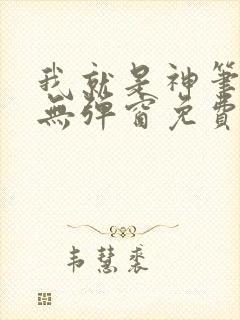 我就是神筆
無彈窗免費
韦慧裘